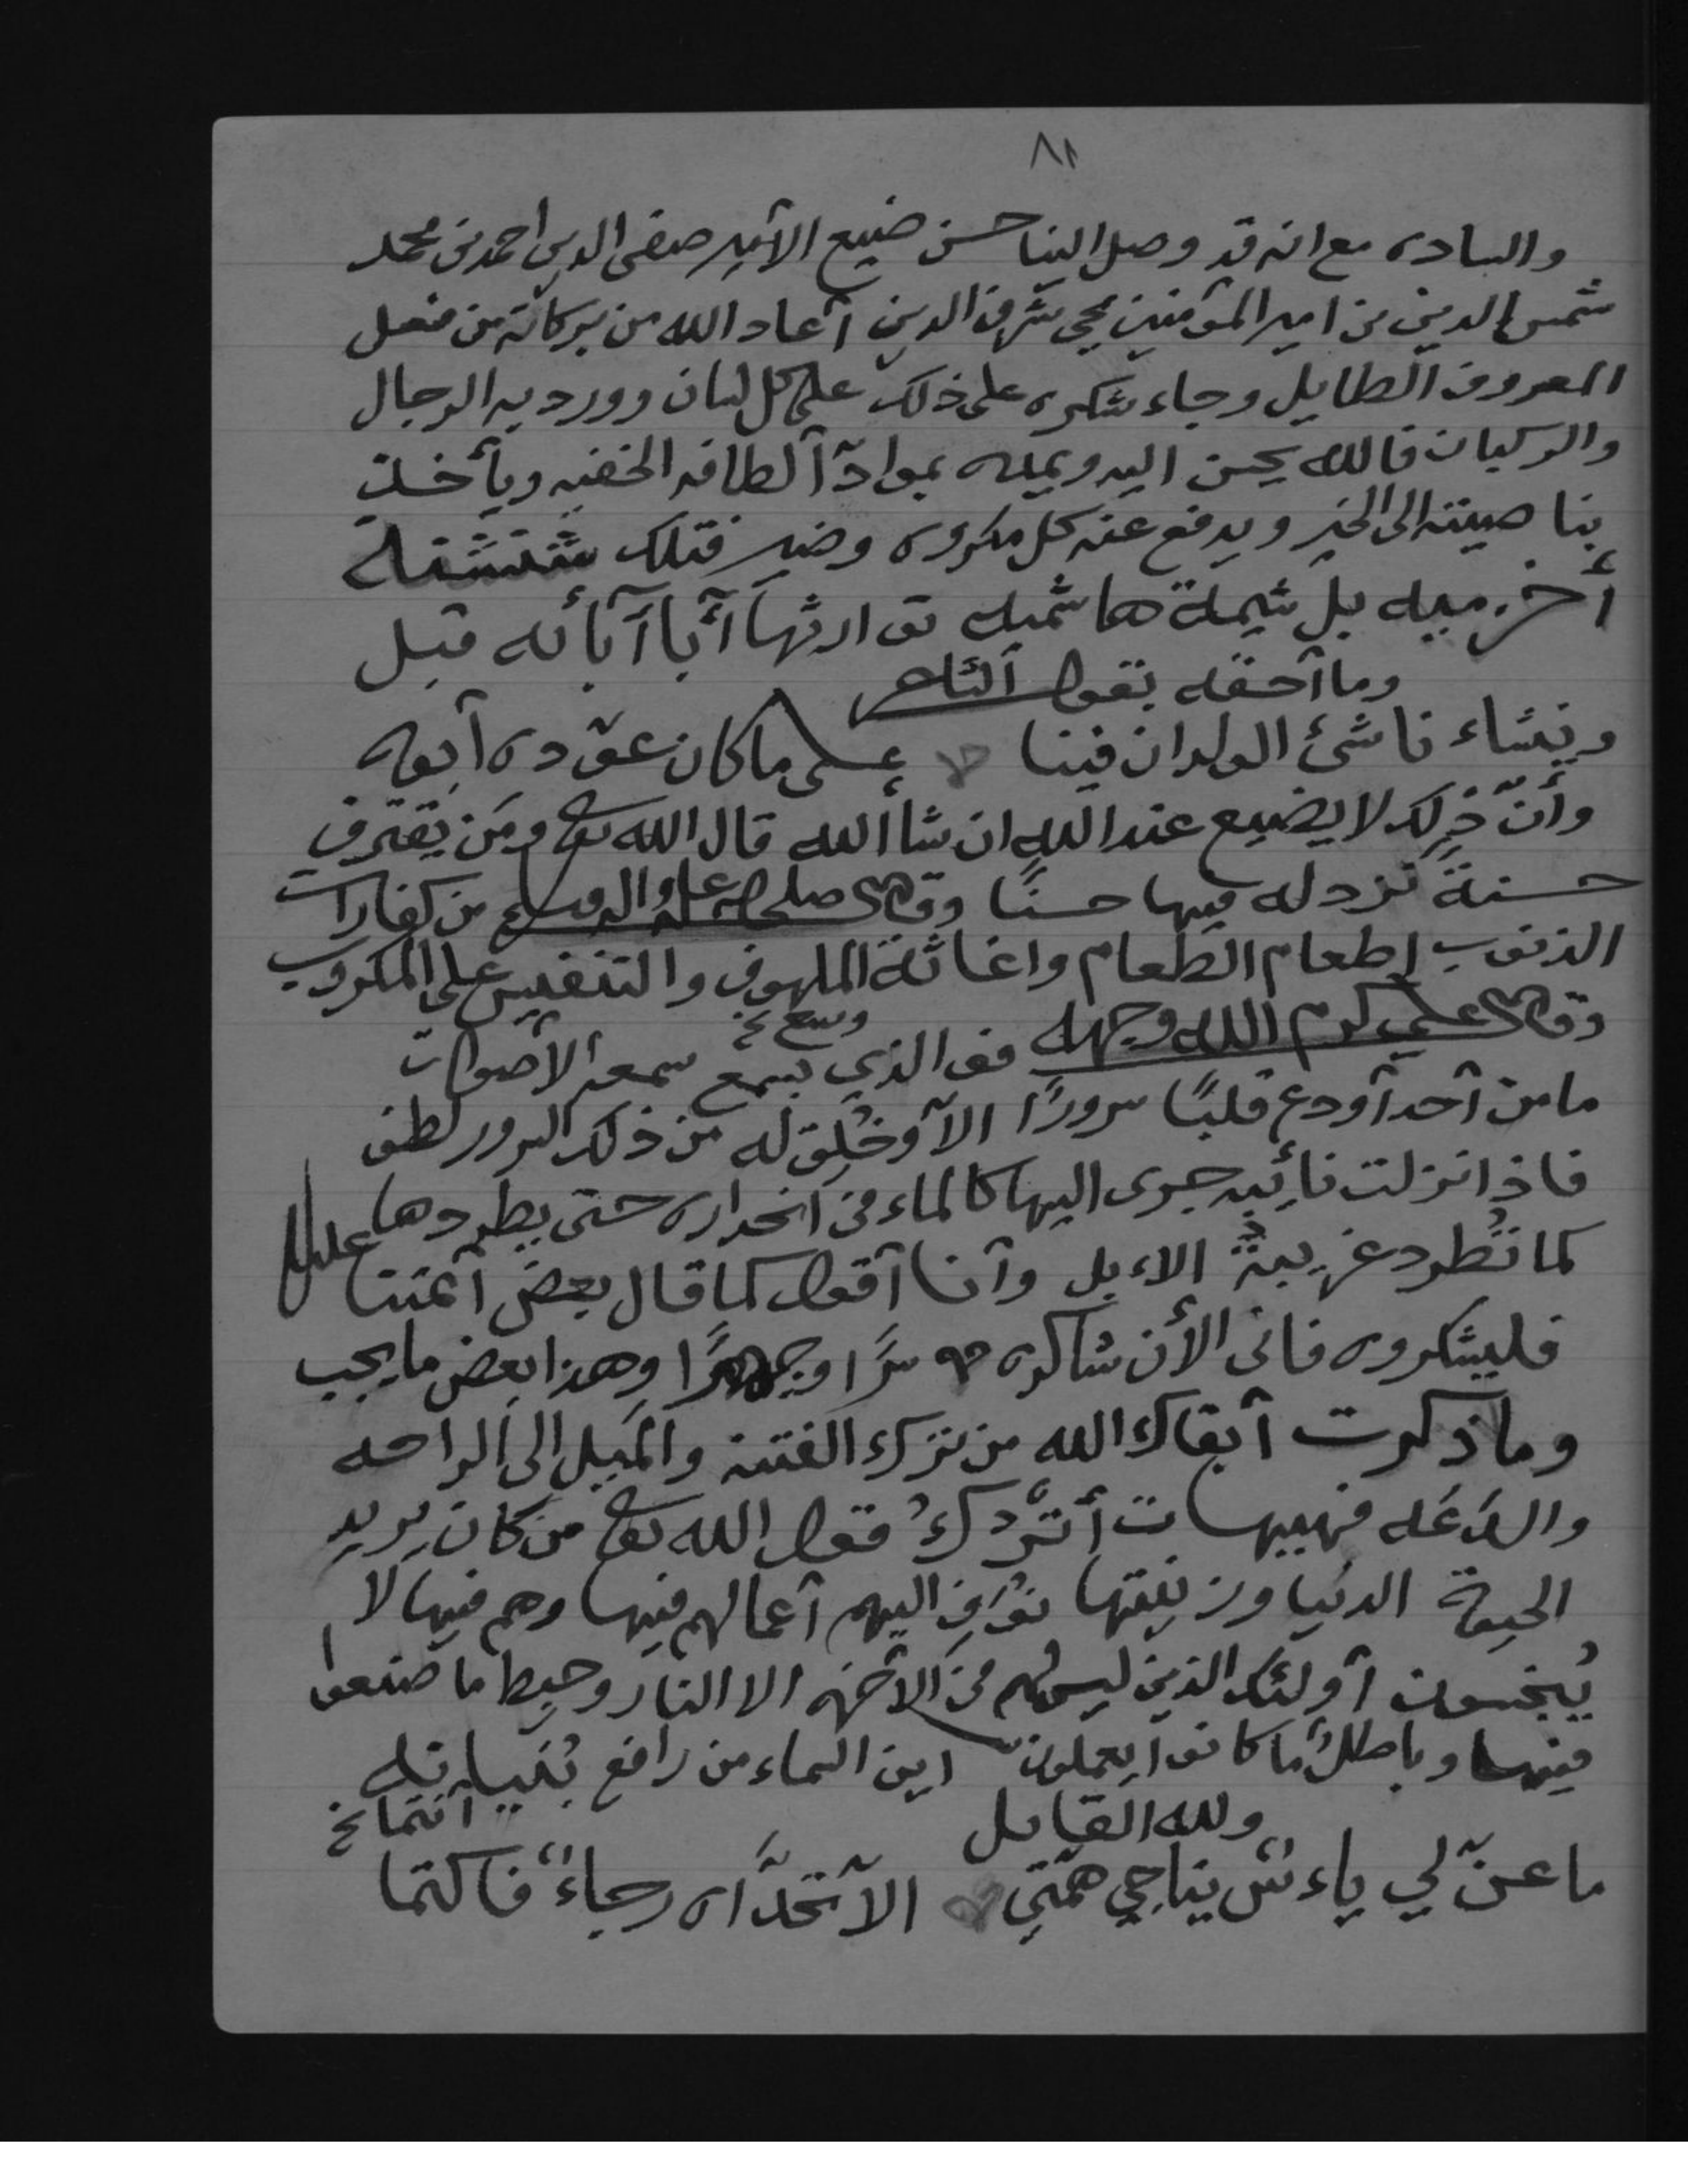 ٨١
والباده مع انه قد وصل الينا حسن ضيع الأمير صفى الدين احمد بن محمد
شمس الدين بن امير المؤمنين يحي شرف الدين أعاد الله من بركاته من فعل
المعروف الطايل وجاء شكره على ذلك على كل لسان وورد به الرجال
والركبان فالله يحسن اليه ويمده بمواد ألطافه الخفيه ويأخذ
بنا صيته الى الخير ويدفع عنه كل مكروه وضير فتلك شنشنه
أخزميه بل شيمة هاشميه توارثها آباء آبائه قبل
وما أحقه بقول الشاعر
وينشاء ناشئ الولدان فينا على ما كان عوّده أبوه
وأنّ ذلك لا يضيع عند الله ان شاألله قال الله تعالى ومن يقترف
حسنةً نزد له فيها حسنًا وقال صلى الله عليه واله وسلم من كفارات
الذنوب إطعام الطعام واغاثة الملهوف والتنفيس على المكروب
وقال علي كرم الله وجهه فو الذي يسمع سمعه الأصوات
وسع نخ
ما من أحد أودع قلبًا سرورًا الآ وخُلِق له من ذلك السرور لطف
فاذا نزلت نائبه جرى اليها كالماء في انحداره حتى يطردها عليه
كما تُطرد غريبةُ الاءبل وأنا أقول كما قال بعض أئمتنا
فليشكروه فانى الأن شاكره سرًا وجهرًا وهذا بعض ما يجب
وما ذكرت أبقاك الله من ترك الفتنة والميل الى الراحه
والدَعَه فهيهات أتردك قول الله تعالى من كان يريد
الحيوة الدنيا وزينتها نوفِ اليهم أعمالهم فيها وهم فيها لا
يُبخسون أولئك الذين ليس لهم في الأخرة الا النار وحبط ما صنعوا
فيها وباطلٌ ما كانوا يعملون اين السماء من رافع بُنيانه
ولله القايل
أنتما نخ
ما عنّ لي ياءسٌ يناجي همّتي الآ تحدّاه رجاءٌ فاكتما